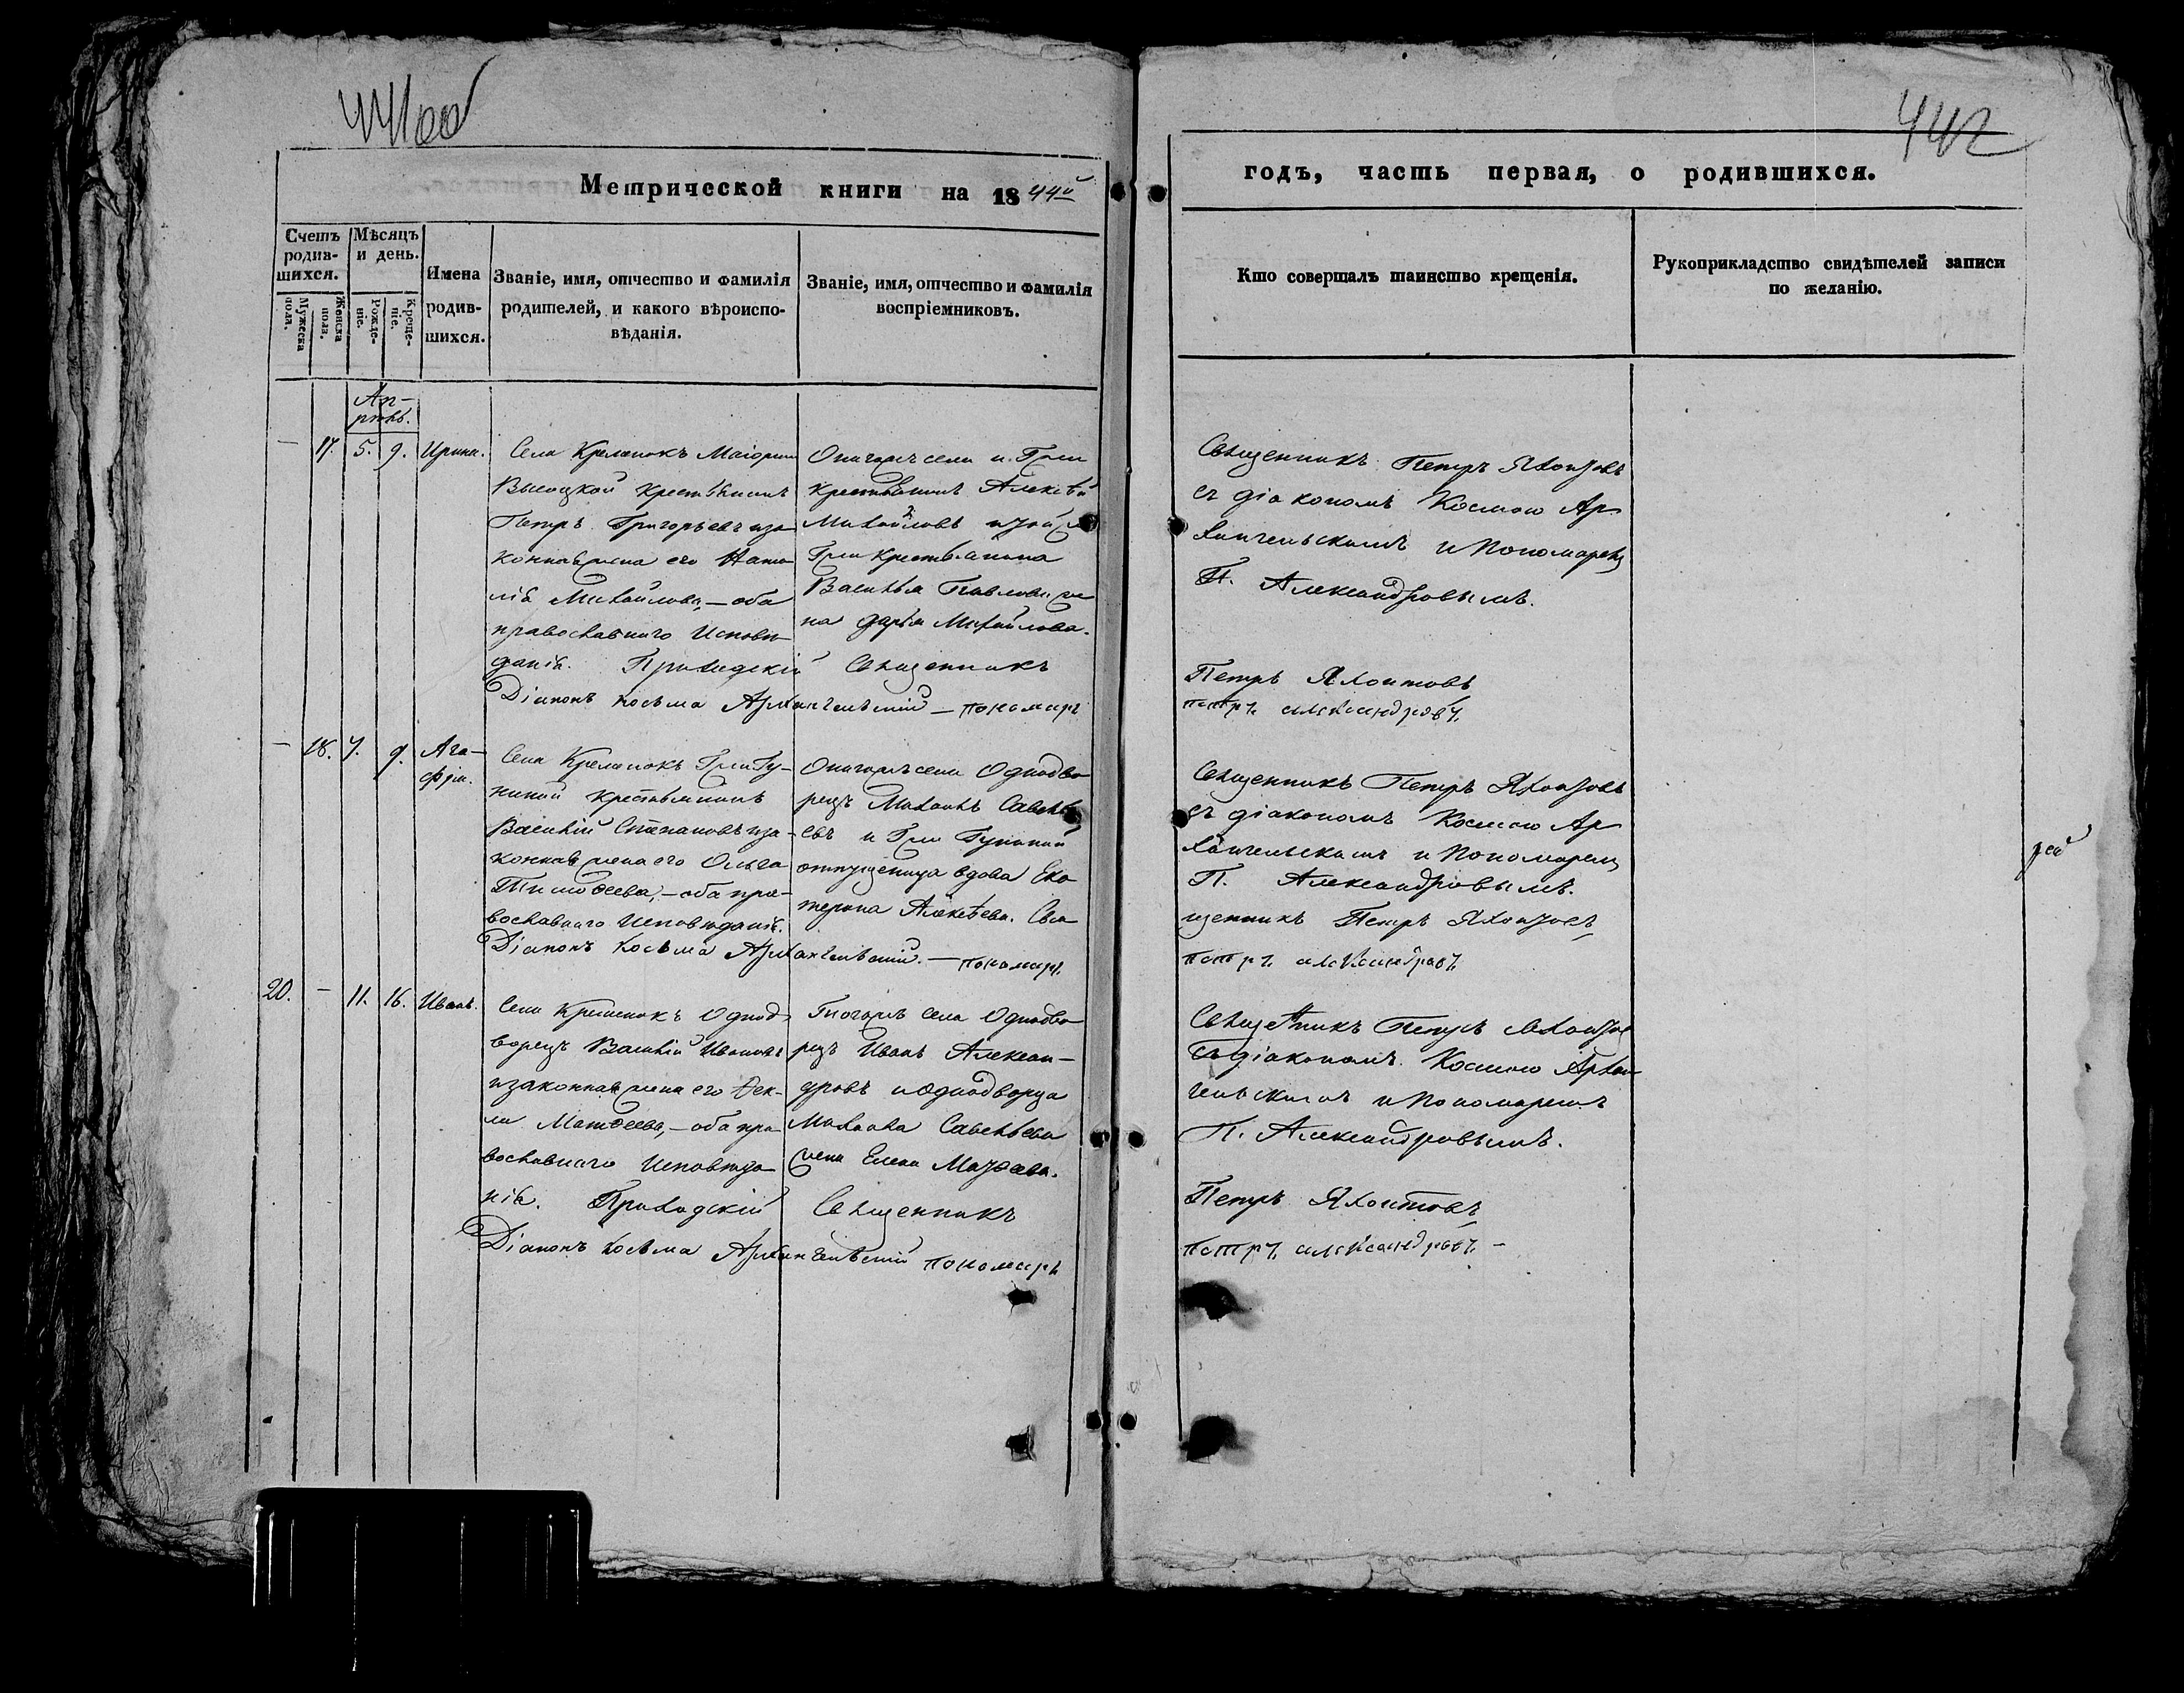 441об
442
Метрической книги на 1844й
годъ, часть первая, о родившихся.
Счетъ родив-шихся.
Мужеска пола.
Женска пола.
Мѣсяцъ и день.
Рожде-ніе.
Креще-ніе.
Имена родив-шихся.
Званіе, имя, отчество и фамилія родителей, и какого вѣроиспо-вѣданія.
Званіе, имя, отчество и фамилія воспріемниковъ.
Кто совершалъ таинство крещенія.
Рукоприкладство свидѣтелей записи по желанію.
Ап-
рѣль.
— 17. 5. 9. Ирина.
Села Маіорши
Высоцкой крестьянинъ
Петръ Григорьевъ иза-
конная жена его Ната-
лія Михайлова, — оба
православнаго Исповѣ-
данія. Приходскій Священникъ
Діаконъ Косьма Архангельскій — пономарь
Тогожъ села и Г-жи
крестьянинъ Алексѣй
Михайловъ и той же
Г-жи крестьянина
Василья Павлова же-
на Дарья Михайлова.
Священникъ Петръ Яхонтовъ
съ діакономъ Космою Ар-
хангельскимъ и Пономаремъ
П. Александровымъ.
Петръ Яхонтовъ
петръ александровъ
— 18. 7. 9. Ага-
фья.
Села Г-жи
крестьянинъ
Василій Степановъ иза-
конная жена его Ольга
Тимофеева, — оба пра-
вославнаго Исповѣданія.
Діаконъ Косьма Архангельскій. — пономарь
Тогожъ села Однодво-
рецъ Михаилъ Савелье-
въ и Г-жи
отпущеница вдова Ека-
терина Алексѣева. Свя-
Священникъ Петръ Яхонтовъ
съ діакономъ Космою Ар-
хангельскимъ и Пономаремъ
П. Александровымъ.
щенникъ Петръ Яхонтовъ
петръ александровъ
20. — 11. 16. Иванъ.
Села Однод-
ворецъ Василій Ивановъ
изаконная жена его Фек-
ла Матфеева, — оба пра-
вославнаго Исповѣда-
нія. Приходскій Священникъ
Діаконъ Косьма Архангельскій пономарь
Тогожъ села Однодво-
рецъ Иванъ Алексан-
дровъ и однодворца
Михаила Савельева
жена Елена
Священникъ Петръ Яхонтов
съ діакономъ Космою Архан-
гельскимъ и Пономаремъ
П. Александровымъ.
Петръ Яхонтовъ
петръ александровъ —